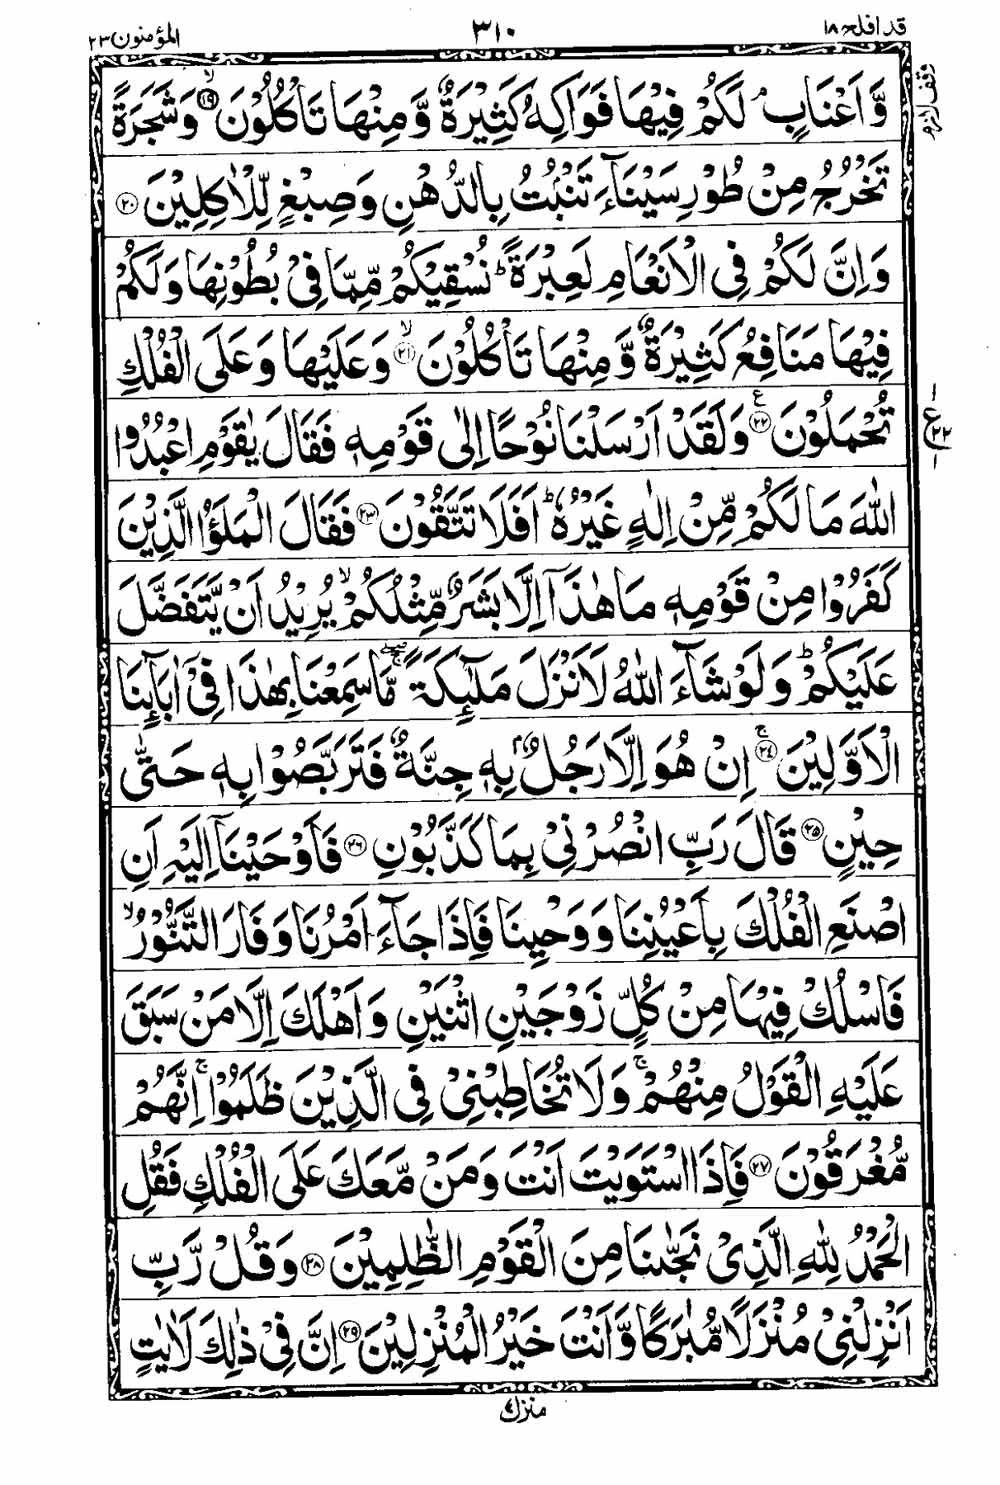 قد افلح ١٨
٣١٠
المؤمنون ٢٣
وقف لازم
وَّاَعْنَابٍ ۘ لَكُمْ فِيْهَا فَوَاكِهُ كَثِيْرَةٌ وَّمِنْهَا تَاْكُلُوْنَ ۙ﴿۱۹﴾ وَشَجَرَةً
تَخْرُجُ مِنْ طُوْرِ سَيْنَآءَ تَنْۢبُتُ بِالدُّهْنِ وَصِبْغٍ لِّلْاٰكِلِيْنَ ﴿۲۰﴾
وَاِنَّ لَكُمْ فِى الْاَنْعَامِ لَعِبْرَةً ؕ نُسْقِيْكُمْ مِّمَّا فِىْ بُطُوْنِهَا وَلَكُمْ
فِيْهَا مَنَافِعُ كَثِيْرَةٌ وَّمِنْهَا تَاْكُلُوْنَ ۙ﴿۲۱﴾ وَعَلَيْهَا وَعَلَى الْفُلْكِ
تُحْمَلُوْنَ ﴿۲۲﴾ ع وَلَقَدْ اَرْسَلْنَا نُوْحًا اِلٰى قَوْمِهٖ فَقَالَ يٰقَوْمِ اعْبُدُوا
ع ٢٢
اللّٰهَ مَا لَكُمْ مِّنْ اِلٰهٍ غَيْرُهٗ ؕ اَفَلَا تَتَّقُوْنَ ﴿۲۳﴾ فَقَالَ الْمَلَؤُا الَّذِيْنَ
كَفَرُوْا مِنْ قَوْمِهٖ مَا هٰذَاۤ اِلَّا بَشَرٌ مِّثْلُكُمْ ۙ يُرِيْدُ اَنْ يَّتَفَضَّلَ
عَلَيْكُمْ ؕ وَلَوْ شَآءَ اللّٰهُ لَاَنْزَلَ مَلٰٓئِكَةً ۖۚ مَّا سَمِعْنَا بِهٰذَا فِىْۤ اٰبَآئِنَا
الْاَوَّلِيْنَ ۚ﴿۲۴﴾ اِنْ هُوَ اِلَّا رَجُلٌۢ بِهٖ جِنَّةٌ فَتَرَبَّصُوْا بِهٖ حَتّٰى
حِيْنٍ ﴿۲۵﴾ قَالَ رَبِّ انْصُرْنِىْ بِمَا كَذَّبُوْنِ ﴿۲۶﴾ فَاَوْحَيْنَاۤ اِلَيْهِ اَنِ
اصْنَعِ الْفُلْكَ بِاَعْيُنِنَا وَوَحْيِنَا فَاِذَا جَآءَ اَمْرُنَا وَفَارَ التَّنُّوْرُ ۙ
فَاسْلُكْ فِيْهَا مِنْ كُلٍّ زَوْجَيْنِ اثْنَيْنِ وَاَهْلَكَ اِلَّا مَنْ سَبَقَ
عَلَيْهِ الْقَوْلُ مِنْهُمْ ۚ وَلَا تُخَاطِبْنِىْ فِى الَّذِيْنَ ظَلَمُوْا ۚ اِنَّهُمْ
مُّغْرَقُوْنَ ﴿۲۷﴾ فَاِذَا اسْتَوَيْتَ اَنْتَ وَمَنْ مَّعَكَ عَلَى الْفُلْكِ فَقُلِ
الْحَمْدُ لِلّٰهِ الَّذِىْ نَجّٰىنَا مِنَ الْقَوْمِ الظّٰلِمِيْنَ ﴿۲۸﴾ وَقُلْ رَّبِّ
اَنْزِلْنِىْ مُنْزَلًا مُّبٰرَكًا وَّاَنْتَ خَيْرُ الْمُنْزِلِيْنَ ﴿۲۹﴾ اِنَّ فِىْ ذٰلِكَ لَاٰيٰتٍ
منزل ٤